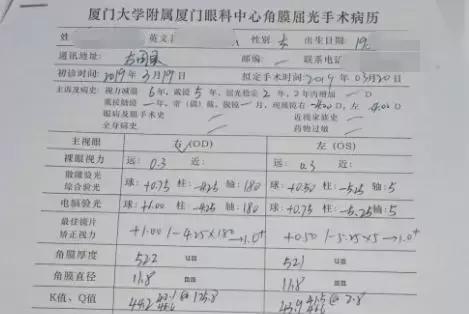 厦门大学附属厦门眼科中心角膜屈光手术病历
英文 性别: 出生日期: 19
通讯地址: 邮编: 联系电话
初诊时间: 2019年3月19日 拟定手术时间: 2019年03月20日
主诉及病史: 视力减退 6 年, 戴镜 5 年, 屈光稳定 2 年, 2年内增加 — D
年, 常 月, 现戴镜右 D, 左 D
眼病及眼手术史 近视家族史
全身病史 药物过敏
主视眼 右(OD) 左(OS)
裸眼视力 远: 0.3 近: 远: 0.3 近:
散瞳验光
综合验光 球: +0.75 柱: -4.25 轴: 180 球: +0.50 柱: -5.25 轴: 5
电脑验光 球: +1.00 柱: -4.25 轴: 180 球: +0.75 柱: -5.25 轴: 5
最佳镜片
矫正视力 +1.00/-4.25×180→1.0+ +0.50/-5.25×5→1.0+
角膜厚度 522 um 521 um
角膜直径 11.8 mm 11.8 mm
K值、Q值